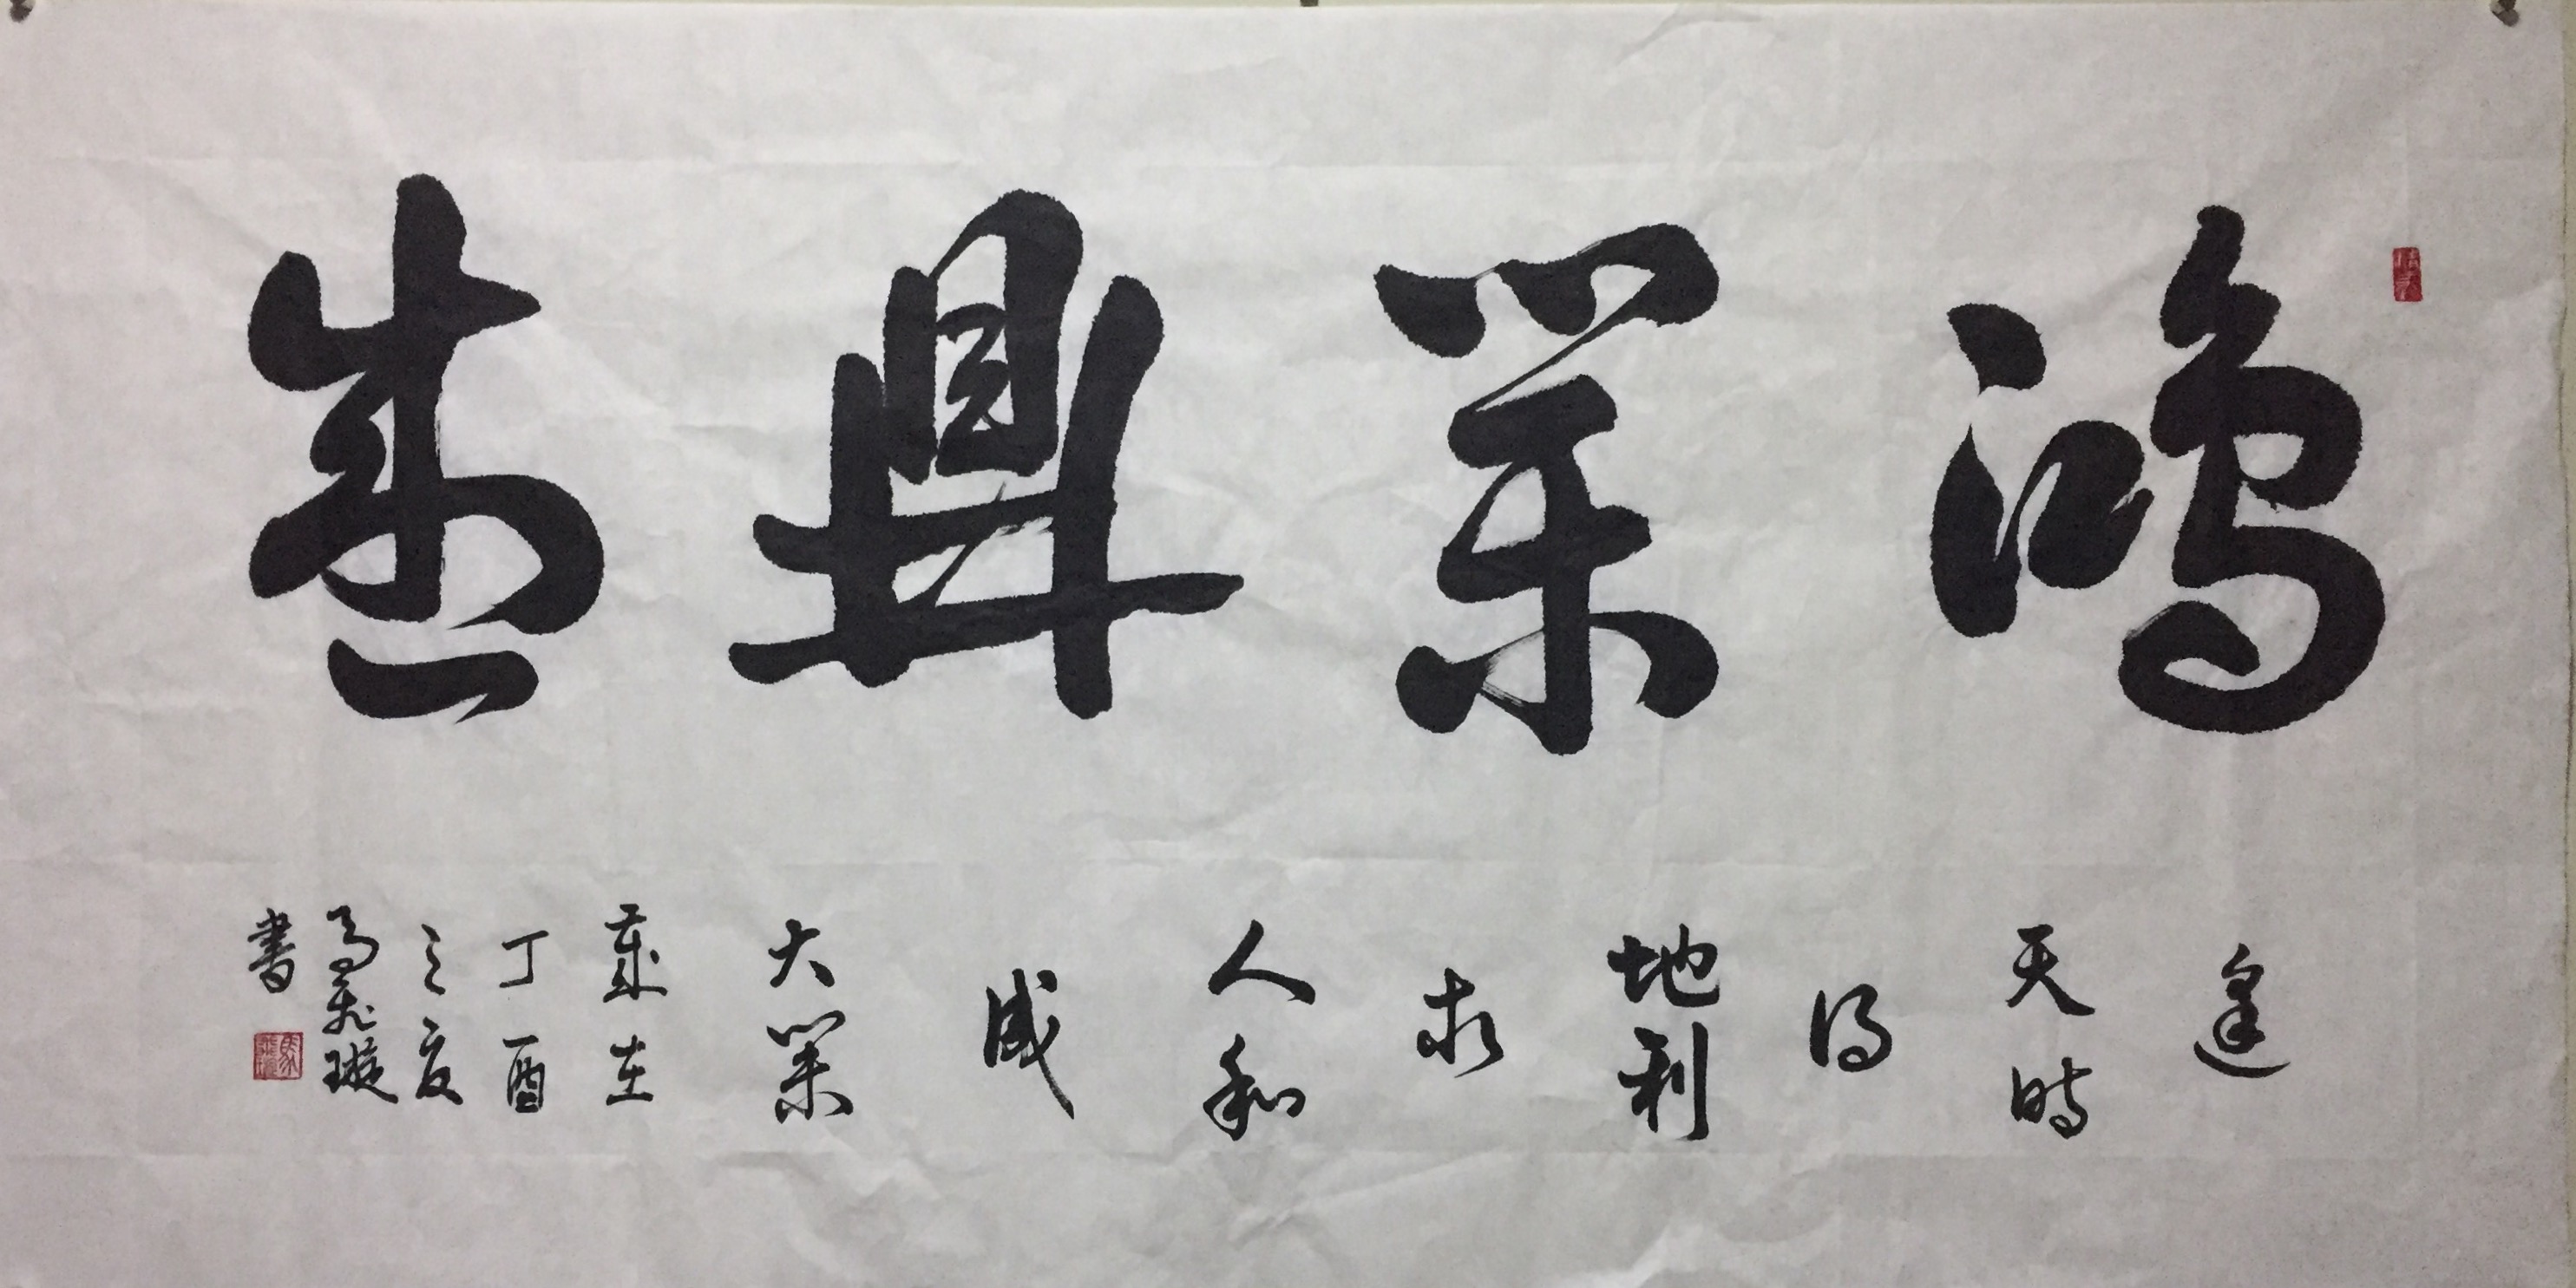 鴻業鼎盛
逢
天時
得
地利
求
人和
成
大業
歲在
丁酉
之夏
馬飛璇
書